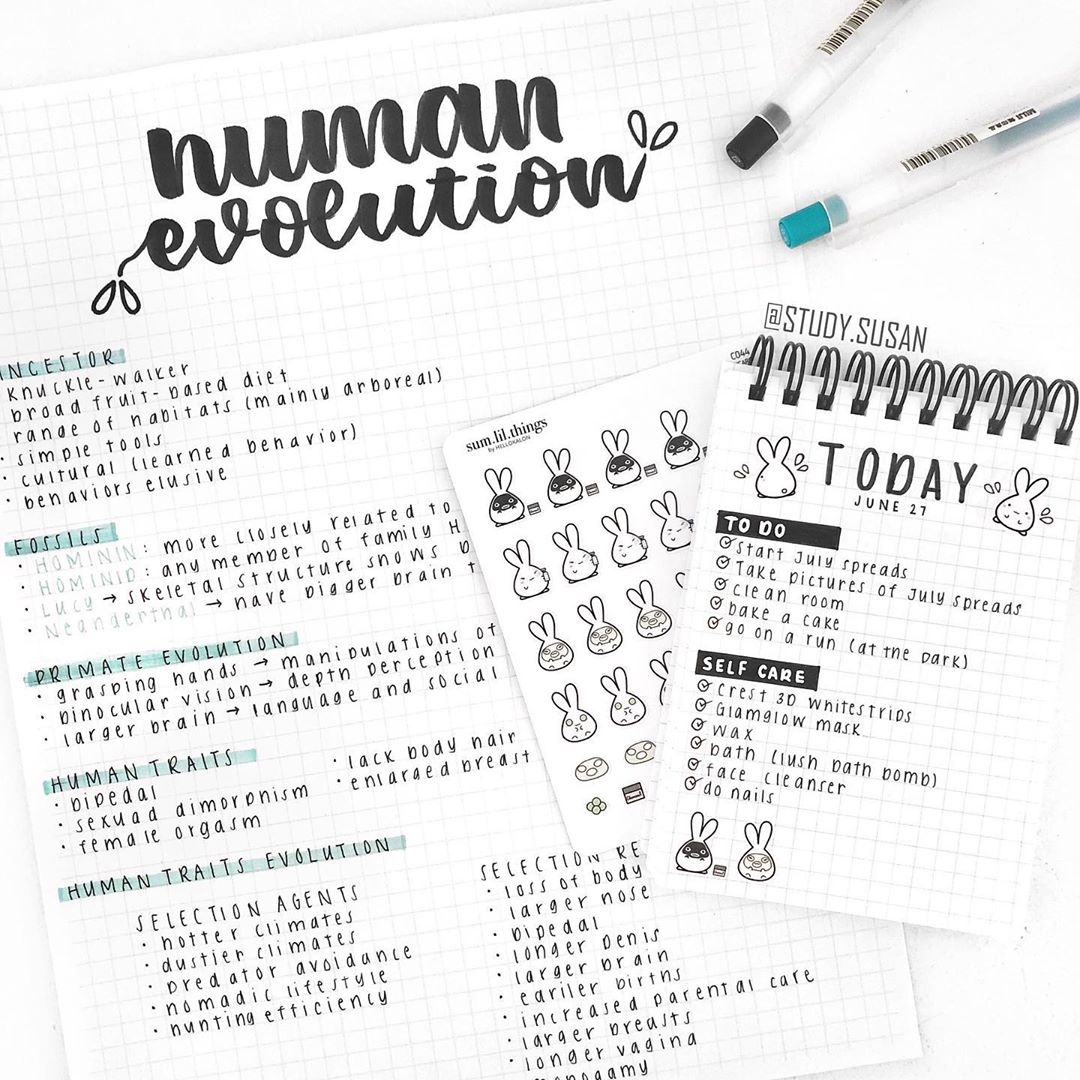 human
evolution
@STUDY.SUSAN
NCESTOR
knuckle-walker
broad fruit-based diet
range of habitats (mainly arboreal)
· simple tools
· cultural (learned behavior)
· behaviors elusive
FOSSILS
· HOMININ: more closely related to
· HOMINID: any member of family H
· LUCY → skeletal structure shows b
· Neanderthal → have bigger brain t
PRIMATE EVOLUTION
· grasping hands → manipulations of
· binocular vision → depth perception
· larger brain → language and social
HUMAN TRAITS
· bipedal
· sexuad dimorphism
· female orgasm
· lack body hair
· enlarged breast
HUMAN TRAITS EVOLUTION
SELECTION AGENTS
· hotter climates
· dustier climates
· predator avoidance
· nomadic lifestyle
· hunting efficiency
SELECTION RE
· loss of body
· larger nose
· bipedal
· longer penis
· larger brain
· eariler births
· increased parental care
· larger breasts
· longer vagina
monogamy
sum.lil.things
by HELLOKALON
C044
TODAY
JUNE 27
TO DO
start July spreads
Take pictures of July spreads
clean room
bake a cake
go on a run (at the park)
SELF CARE
Crest 3D whitestrips
Glamglow mask
wax
bath (lush bath bomb)
face cleanser
do nails
MUJI